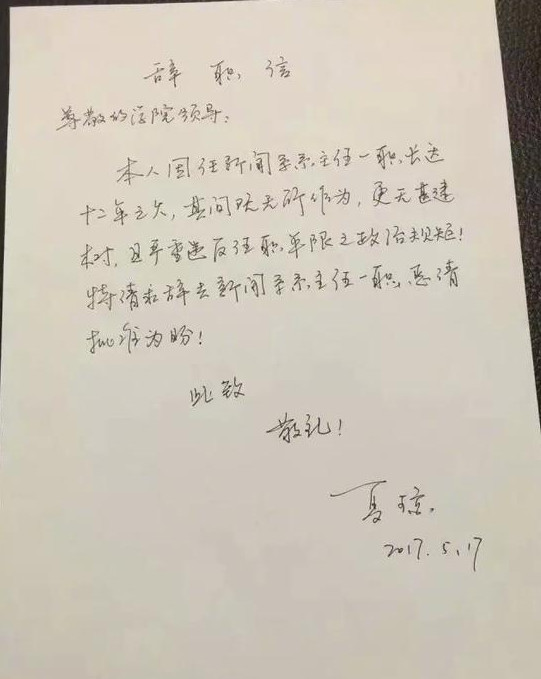 辞职信
尊敬的学院领导:
本人因任新闻系系主任一职长达
十二年之久,其间既无所作为,更无甚建
树,且严重违反任职年限之政治规矩!
特请求辞去新闻系系主任一职,恳请
批准为盼!
此致
敬礼!
夏琼
2017.5.17